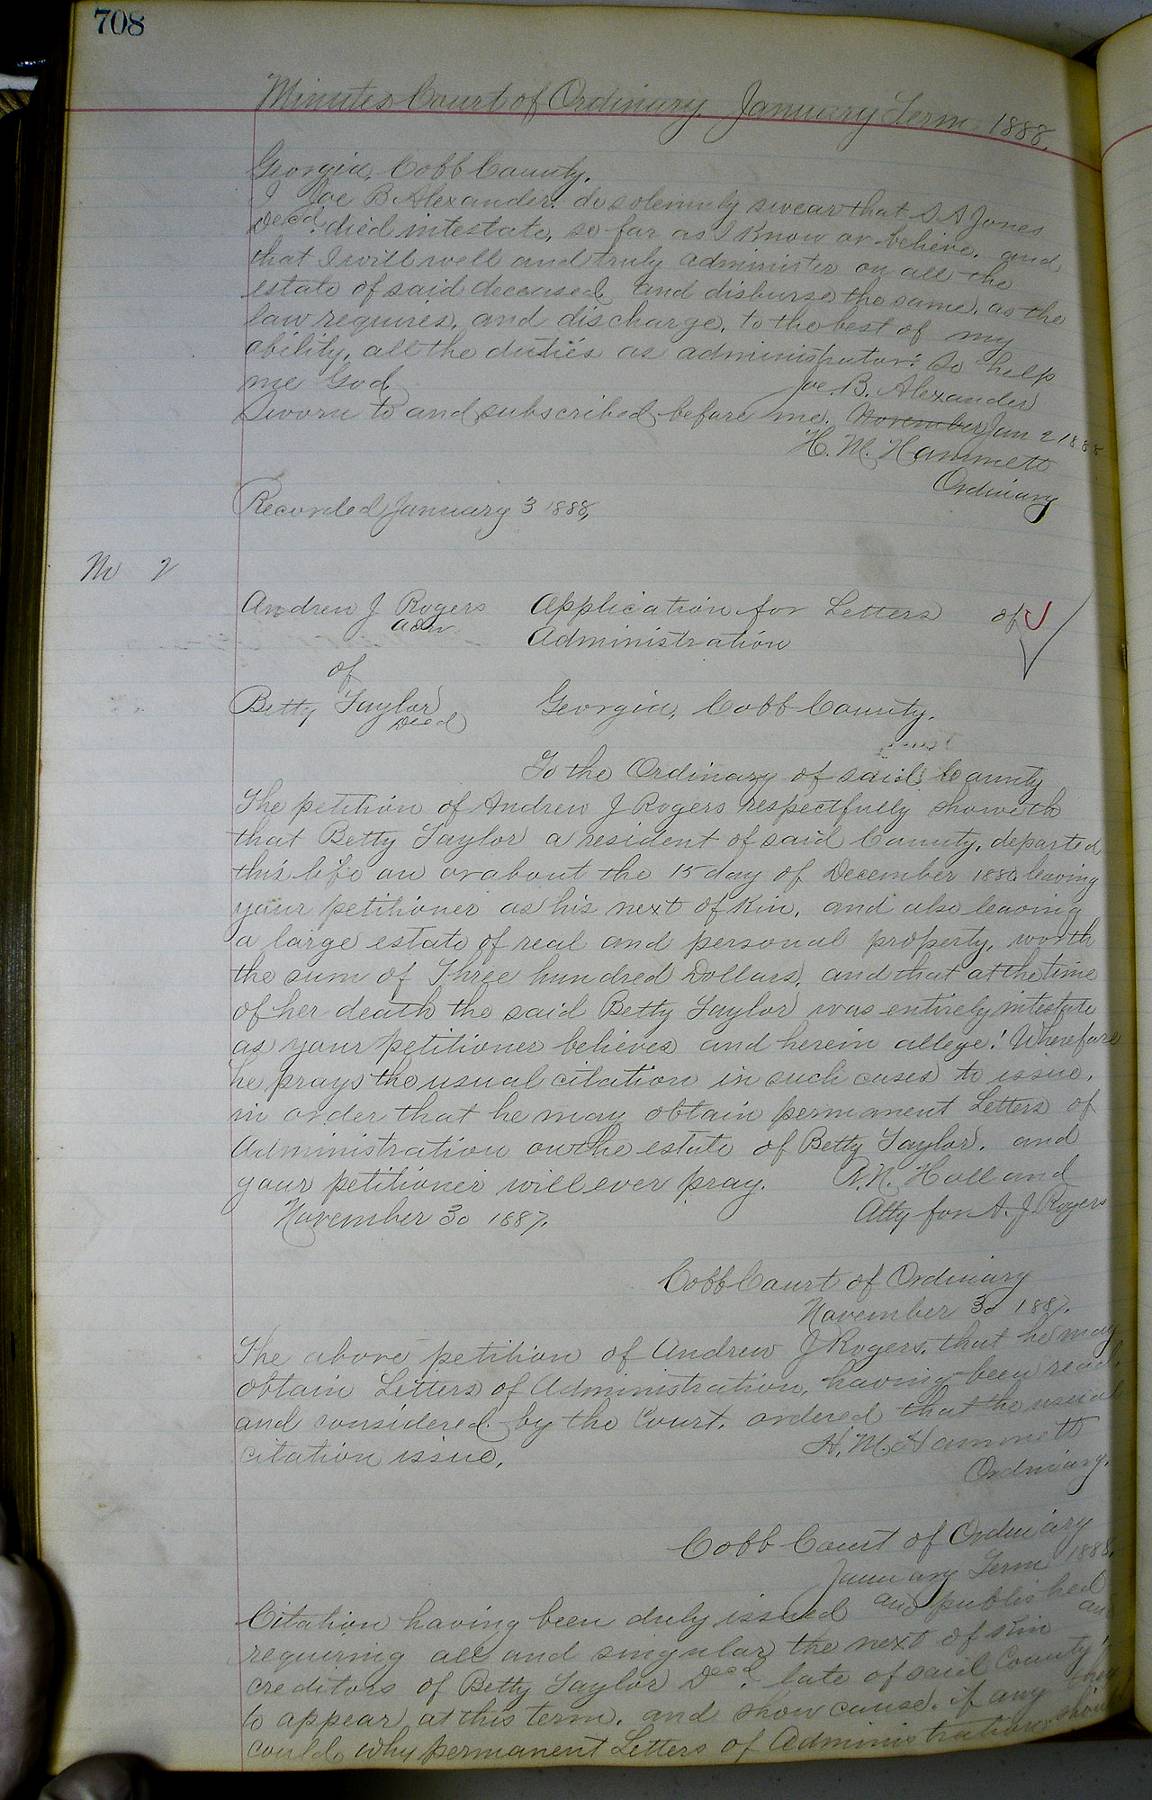 708
Minutes Court of Ordinary, January Term, 1888.
Georgia, Cobb County.
I Joe B Alexander do solemnly swear that S A Jones
Decd. died intestate, so far as I know or believe, and
that I will well and truly administer on all the
estate of said deceased, and disburse the same, as the
law requires, and discharge, to the best of my
ability, all the duties as administrator: So help
me God. Joe. B. Alexander
Sworn to and subscribed before me. November Jan 2 1888
H. M. Hammett
Ordinary
Recorded January 3 1888,
No 2
Andrew J Rogers Application for Letters of
Adm Administration
of
Betty Taylor Georgia, Cobb County.
Decd
To the Ordinary of said County
The petition of Andrew J Rogers respectfully showeth
that Betty Taylor a resident of said County, departed
this life on or about the 15 day of December leaving
your petitioner as his next of Kin, and also leaving
a large estate of real and personal property, worth
the sum of Three hundred Dollars, and that at the time
of her death the said Betty Taylor was entirely intestate
as your petitioner believes and herein allege: Wherefore
he prays the usual citation in such cases to issue,
in order that he may obtain permanent Letters of
Administration on the estate of Betty Taylor. and
your petitioner will ever pray. A. N. Holland
November 30 1887. Atty for A. J. Rogers
Cobb Court of Ordinary
November 30 1887.
The above petition of Andrew J Rogers, that he may
obtain Letters of Administration, having been read,
and considered by the Court, ordered that the usual
citation issue. H. M. Hammett
Ordinary.
Cobb Court of Ordinary
January Term 1888,
Citation having been duly issued and published
requiring all and singular the next of Kin and
creditors of Betty Taylor Decd. late of said County,
to appear at this term, and show cause, if any they
could, why permanent Letters of Administration should